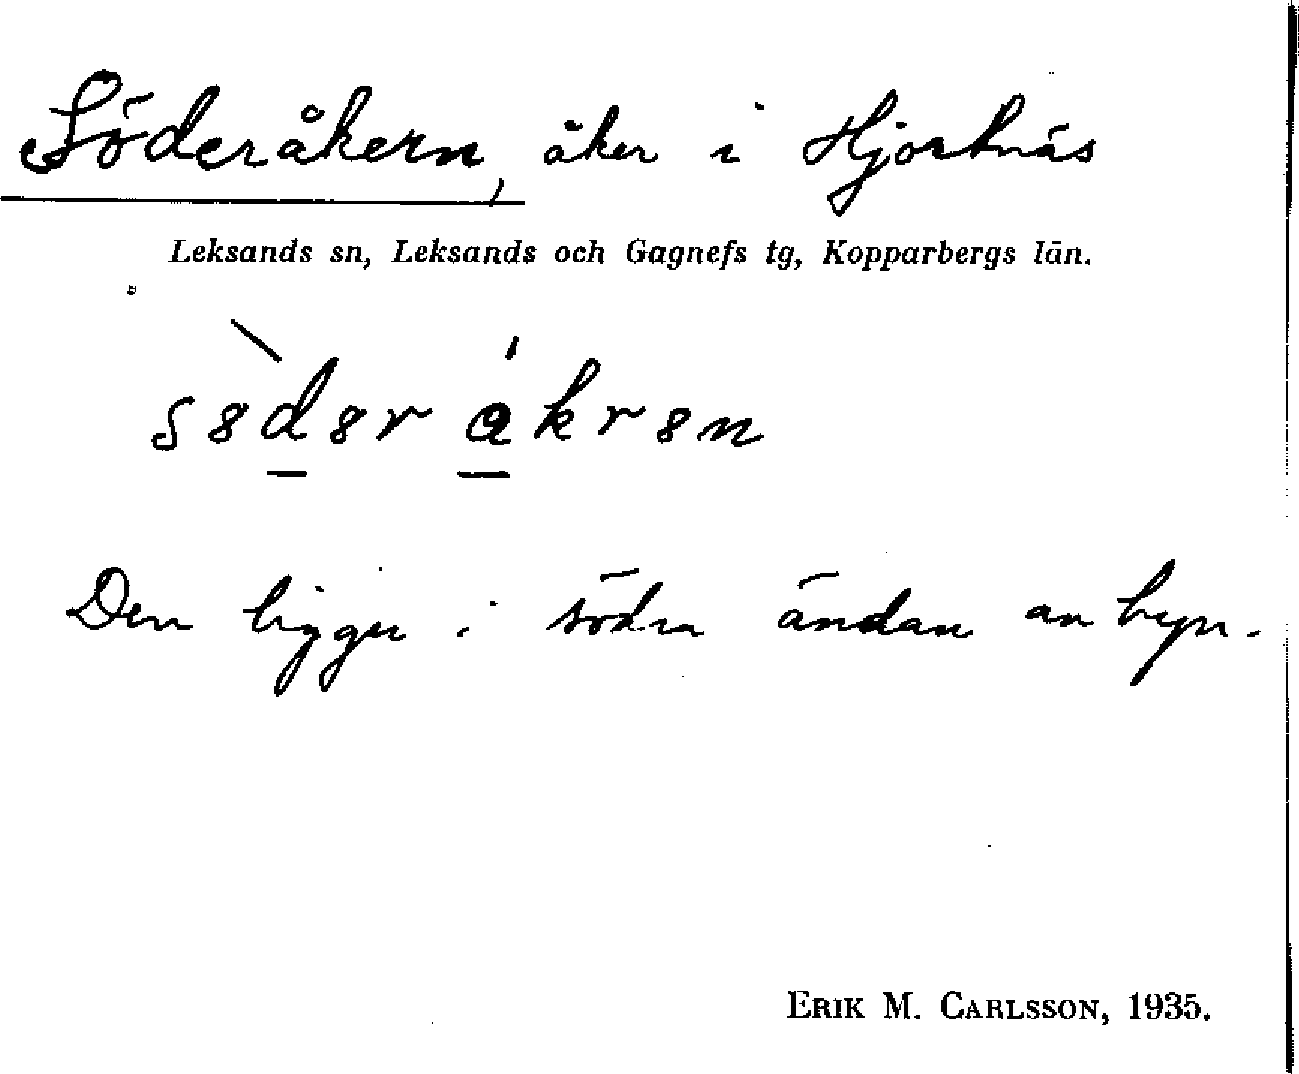 Söderåkern, åker i Hjortnäs
Leksands sn, Leksands och Gagnefs tg, Kopparbergs län.
Den ligger i södra ändan av byn.
ERIK M. CARLSSON, 1935.